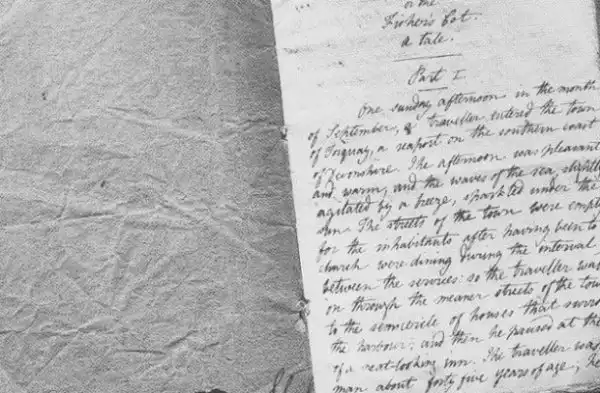 or the
Fisher's Cot.
a tale.
Part I
One sunday afternoon in the month
of September, a traveller entered the town
of Torquay, a seaport on the southern coast
of Devonshire. The afternoon was pleasant
and warm, and the waves of the sea, slightly
agitated by a breeze, sparkled under the
sun. The streets of the town were empty
for the inhabitants after having been to
church were dining during the interval
between the services: so the traveller
on through the meaner streets of the
to the semicircle of houses that
the harbour; and then he paused at the
of a neat-looking inn. The traveller was
man about forty five years of age;